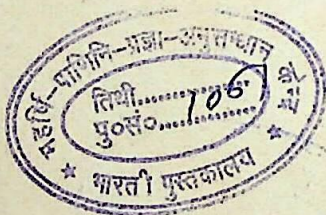 महर्षि-पाणिनि-प्रज्ञा-अनुसन्धान केन्द्र
तिथी..............
पु०सं०....106
भारती पुस्तकालय